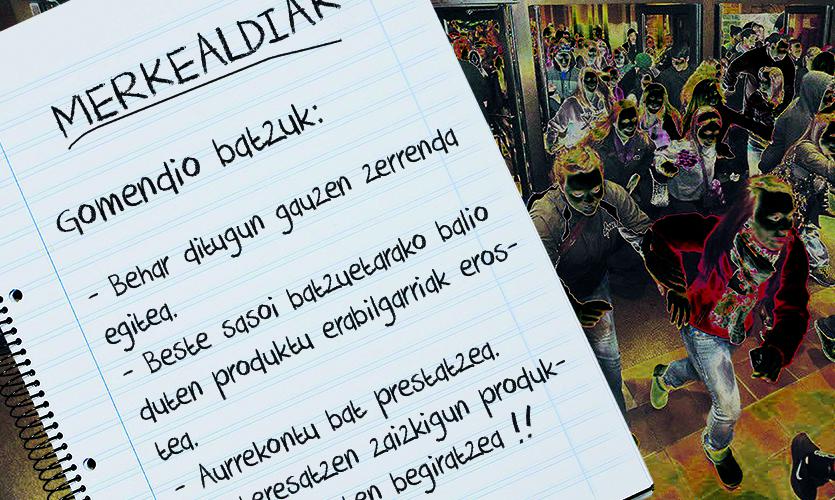 MERKEALDIAK
Gomendio batzuk:
- Behar ditugun gauzen zerrenda
egitea.
- Beste sasoi batzuetarako balio
duten produktu erabilgarriak eros-
tea.
- Aurrekontu bat prestatzea.
zaizkigun produk-
begiratzea !!